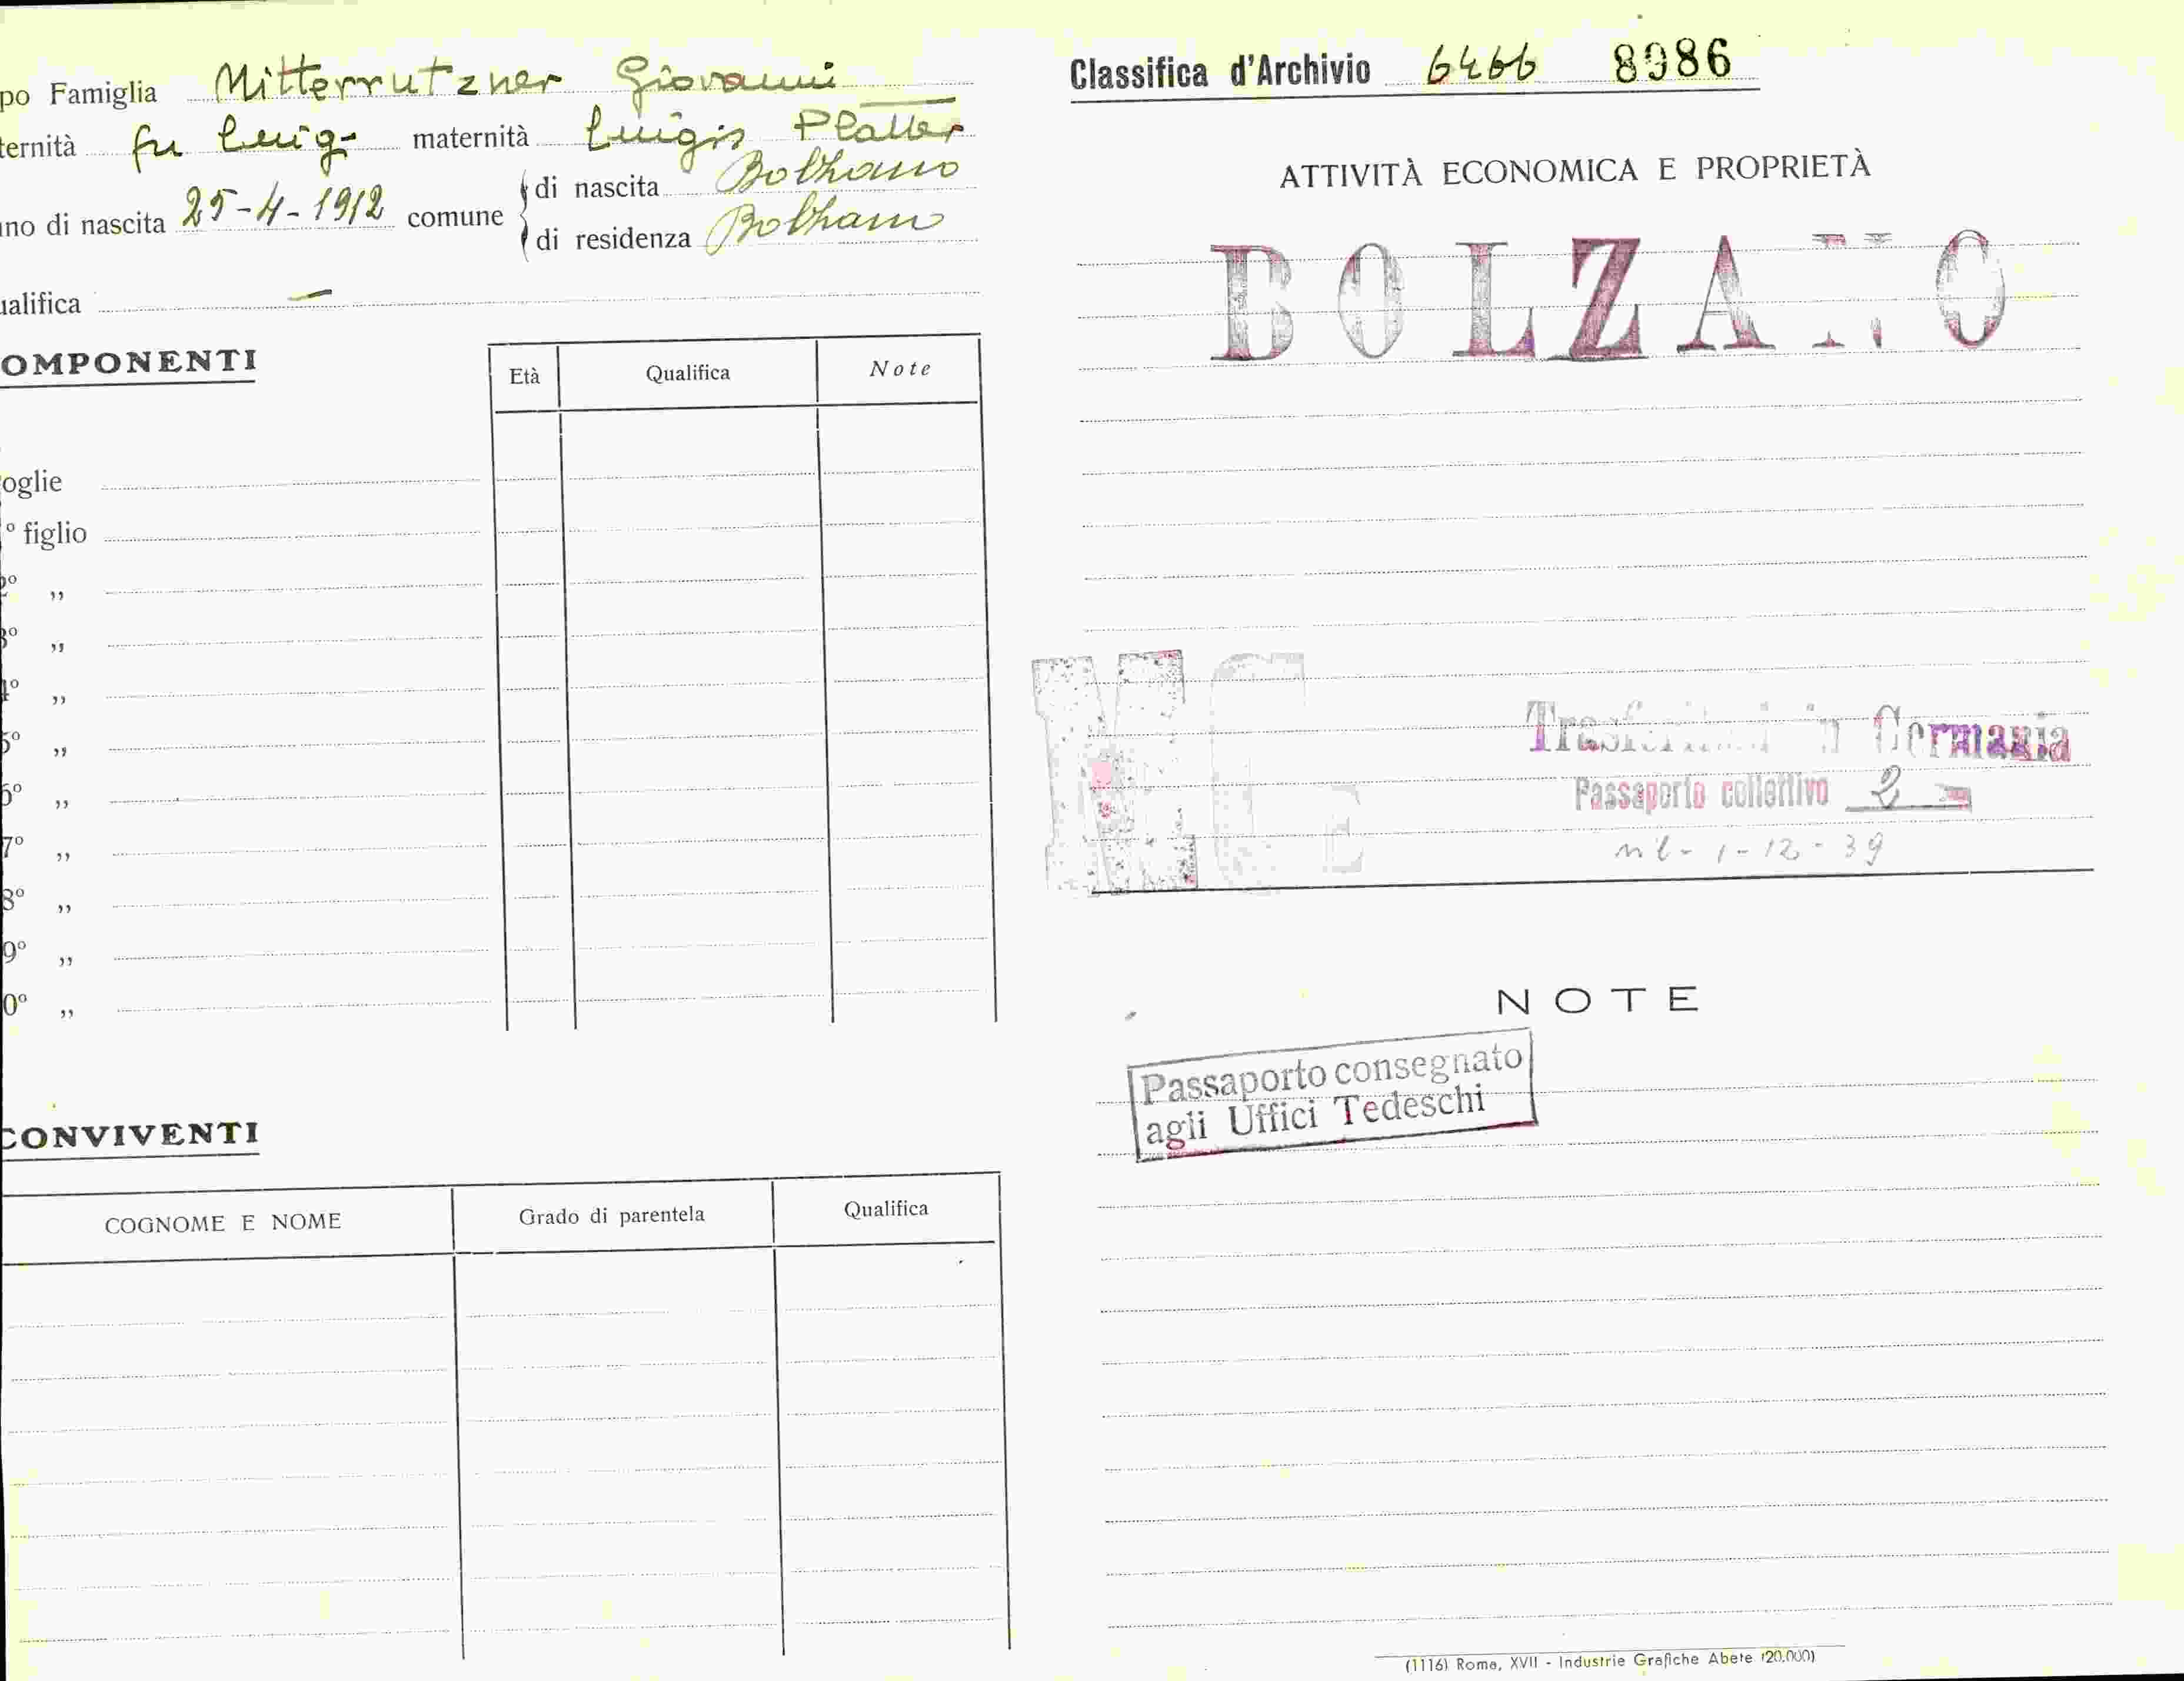 po Famiglia Mitterrutzner Giovanni
ternità fu Luig- maternità Luigia Platter
no di nascita 25-4-1912 comune di nascita Bolzano
di residenza Bolzano
ualifica —
OMPONENTI
Età Qualifica Note
oglie
º figlio
2º ,,
3º ,,
4º ,,
5º ,,
6º ,,
7º ,,
8º ,,
9º ,,
0º ,,
CONVIVENTI
COGNOME E NOME Grado di parentela Qualifica
Classifica d'Archivio 6466 8986
ATTIVITÀ ECONOMICA E PROPRIETÀ
BOLZANO
in Germania
Passaporto collettivo 2
1-12-39
NOTE
Passaporto consegnato
agli Uffici Tedeschi
(1116) Roma, XVII - Industrie Grafiche Abete (20.000)